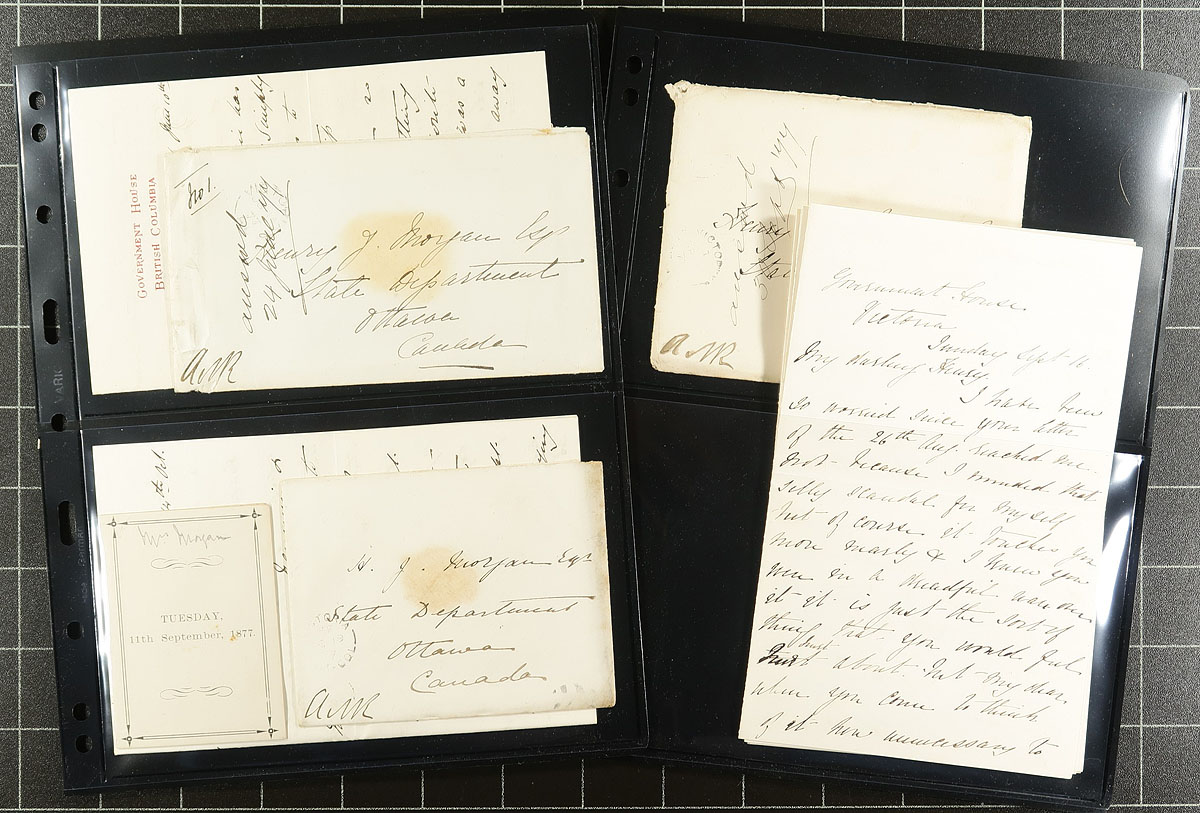 GOVERNMENT HOUSE
BRITISH COLUMBIA
No 1.
answd
24
Henry J. Morgan Esq
State Department
Ottawa
Canada
AMR
Mrs Morgan
TUESDAY,
11th September, 1877.
H. J. Morgan Esqr
State Department
Ottawa
Canada
AMR
Henry
AMR
Government House
Victoria
Sunday Sept 16.
My darling Henry
I have been
so worried since your letter
of the 26th Aug. reached me.
not because I minded that
silly scandal for myself
but of course it touches you
more nearly & I knew you
were in a dreadful way over
it it is just the sort of
thing that you would feel
hurt about. but my dear
when you come to think
of it how unnecessary to